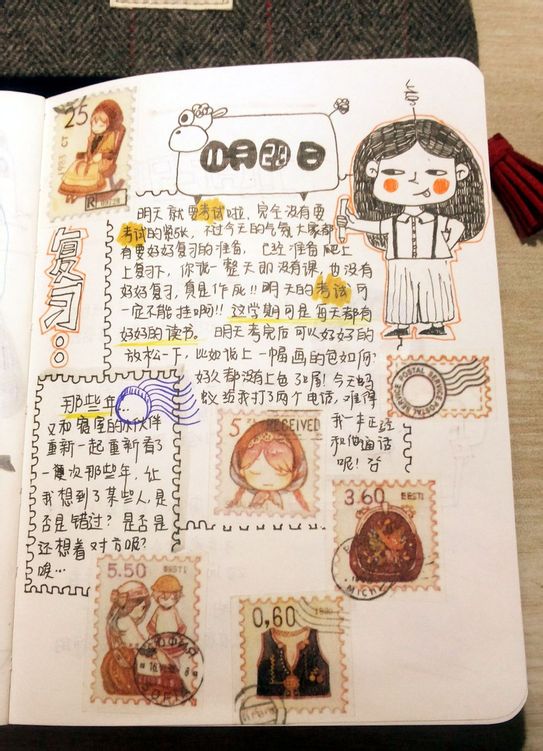 25
11月28日
复习:
明天就要考试啦,完全没有要
考试的紧张,不过今天的气氛大家都
有要好好复习的准备,已经准备爬上
上复习下,你说一整天即没有课,也没有
好好复习,真是作死!!明天的考试可
一定不能挂啊!!这学期可是每天都有
好好的读书。明天考完后可以好好的
放松一下,比如说上一幅画的包如何?
好久都没有上色了尾!今天蚂
蚁给我打了两个电话,难得
我一本正经
和他通话
呢!
那些年...
又和寝室的小伙伴
重新一起重新看了
一次那些年,让
我想到了某些人,是
否是错过?是否是
还想着对方呢?
唉...
POSTAL SERVICE
5
RECEIVED
3.60
EESTI
5.50
EESTI
0,60